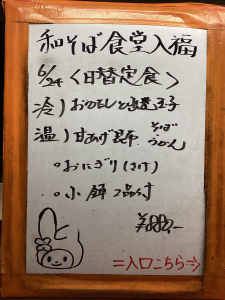 和そば食堂入福
6/24 <日替定食>
冷) おろし と 玉子
温) 甘あげ そば
うどん
。おにぎり(さけ)
。小鉢 2品付
¥880,-
=入口こちら⇒